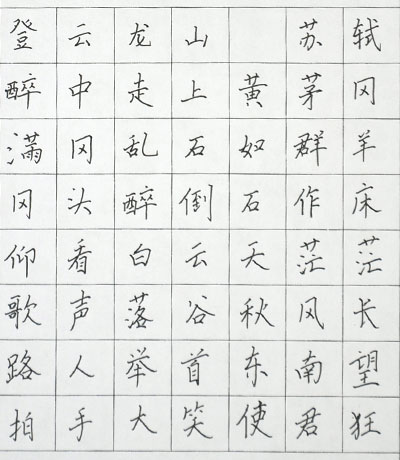 登云龙山 苏轼
醉中走上黄茅冈
满冈乱石奴群羊
冈头醉倒石作床
仰看白云天茫茫
歌声落谷秋风长
路人举首东南望
拍手大笑使君狂